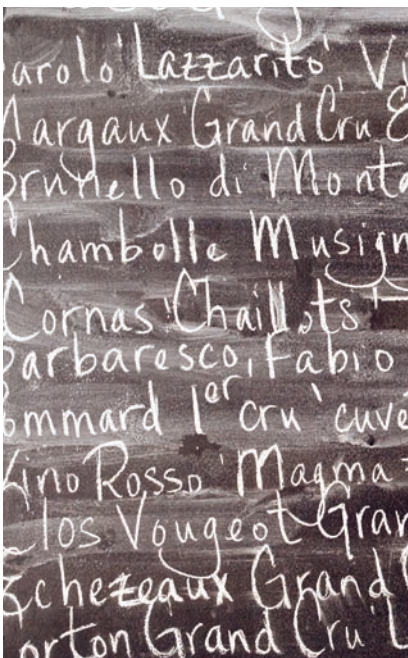 arolo 'Lazzarito', Vi
Margaux 'Grand Cru E
Brunello di Monta
Chambolle Musign
Cornas 'Chaillots'
Barbaresco, Fabio
Pommard 1er cru 'cuvé
Vino Rosso 'Magma
Clos Vougeot Gran
Echezeaux Grand C
orton Grand Cru 'L